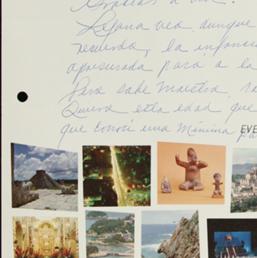 Gracias a Dios.
Lejana vea, aunque
recuerda, la infancia
apresurada para a la
Para sabe maestra, sa
Quiera esta edad que
que conocí una mínima pa
EVE